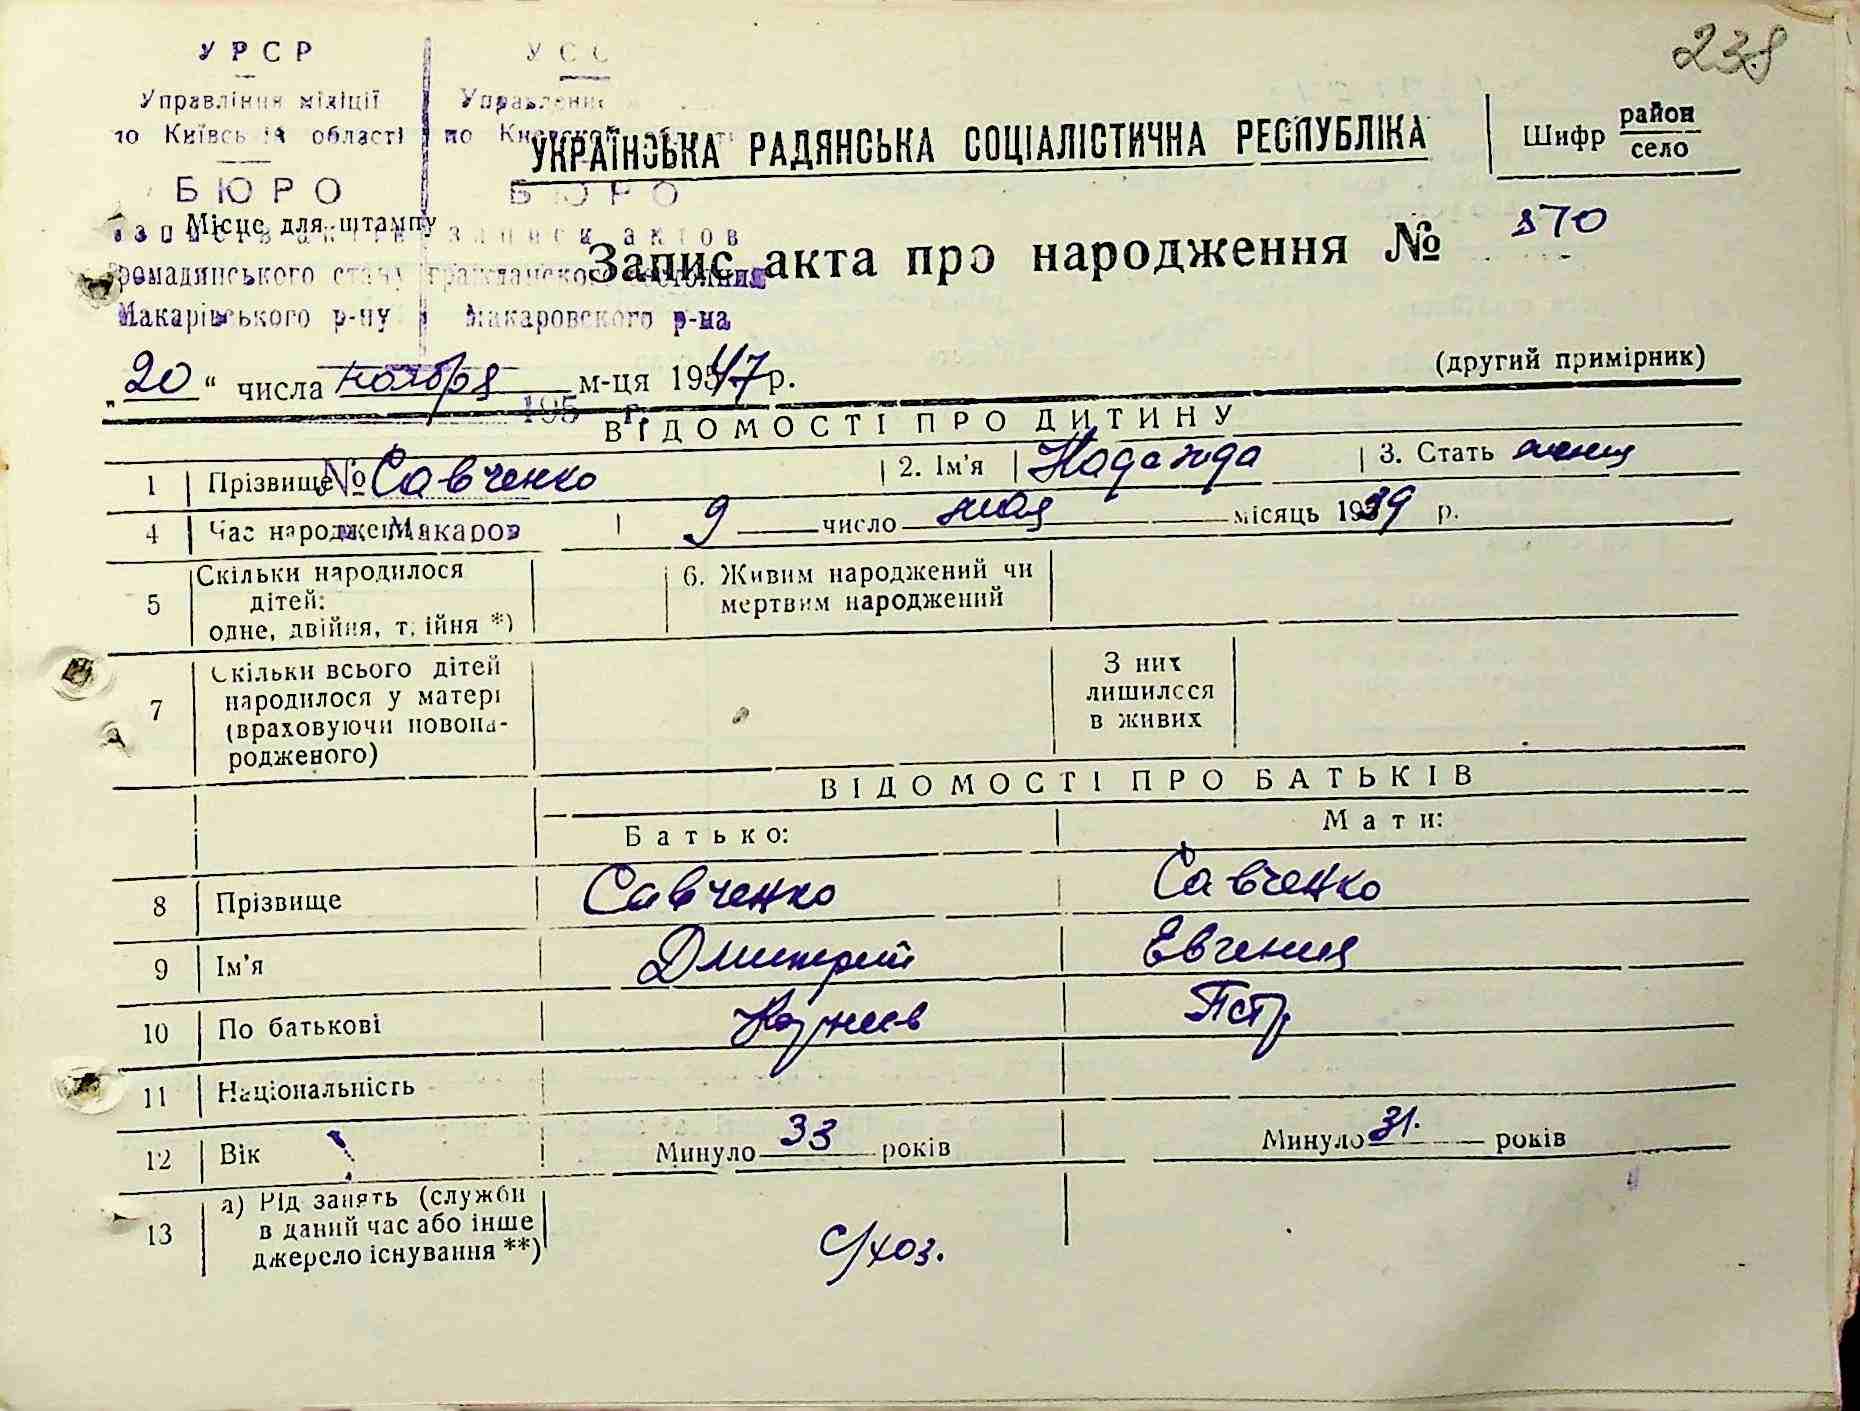 238
УРСР
УСС
Управління міліції
Управление
по Київській області
по Киевской
УКРАЇНСЬКА РАДЯНСЬКА СОЦІАЛІСТИЧНА РЕСПУБЛІКА
Шифр район село
БЮРО
БЮРО
Місце для штампу
записів актів
записи актов
Запис акта про народження № 870
громадянського стану
гражданского состояния
Макарівського р-ну
Макаровского р-на
„20“ числа ноября м-ця 1947 р.
(другий примірник)
195 г.
ВІДОМОСТІ ПРО ДИТИНУ
1 Прізвище № Савченко 2. Ім'я Надежда 3. Стать женщ
4 Час народжен Макаров 9 число мая місяць 1939 р.
5 Скільки народилося дітей: одне, двійня, трійня *)
6. Живим народжений чи мертвим народжений
7 Скільки всього дітей народилося у матері (враховуючи новона-родженого)
З них лишилося в живих
ВІДОМОСТІ ПРО БАТЬКІВ
Батько: Мати:
8 Прізвище Савченко Савченко
9 Ім'я Дмитрий Евгения
10 По батькові Корнеев Петр
11 Національність
12 Вік Минуло 33 років Минуло 31. років
13 а) Рід занять (служби в даний час або інше джерело існування **) с/хоз.